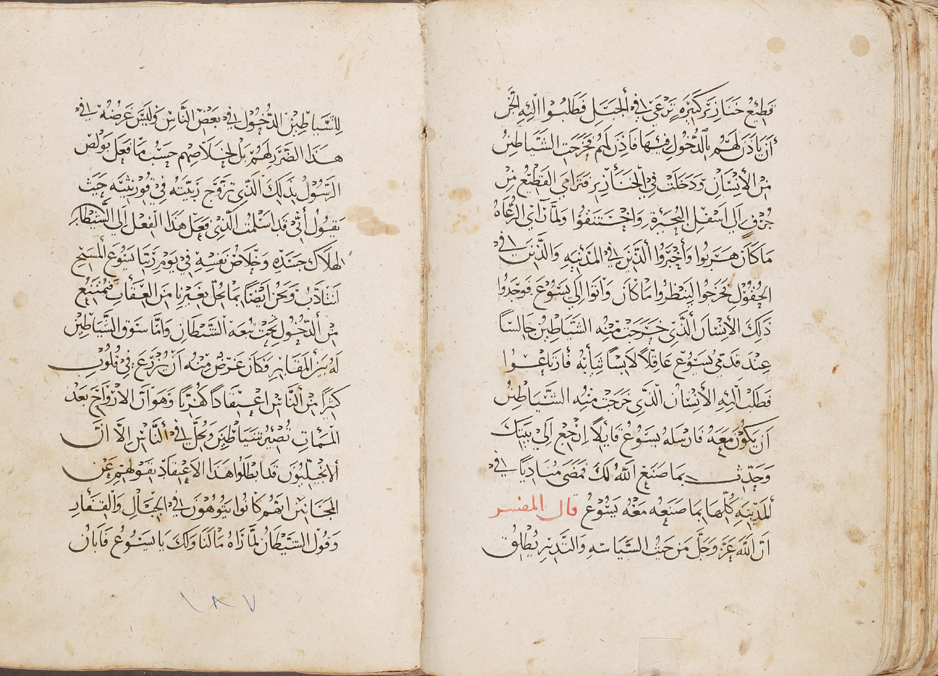 قطيع خنازير كثيره ترعى في الجبل فطلبوا اليه الجن
ان ياذن لهم بالدخول فيها فاذن لهم فخرجت الشياطين
من الانسان ودخلت في الخنازير فترامى القطيع من
جرف الى اسفل البحيرة واختنقوا ولما راى الرعاه
ما كان هربوا واخبروا الذين في المدينه والذين في
الحقول فخرجوا لينظروا ما كان واتوا الى يسوع فوجدوا
ذلك الانسان الذي خرجت منه الشياطين جالسا
عند قدمي يسوع عاقلا لابسا ثيابه فارتاعوا
فطلب اليه الانسان الذي خرجت منه الشياطين
ان يكون معه فارسله يسوع قايلا ارجع الى بيتك
وحدث بما صنع الله لك فمضى مناديا في
المدينه كلها بما صنعه معه يسوع قال المفسر
ان الله عز وجل من حيث السياسه والتدبير يطلق
للشياطين الدخول في بعض الناس وليس غرضه في
هذا الضرر لهم بل خلاصهم حسب ما فعل بولص
الرسول بذلك الذي تزوج ربيته في قورنثيه حيث
يقول اني قد اسلمت الذي فعل هذا الفعل الى الشيطان
لهلاك جسده وخلاص نفسه في يوم ربنا يسوع المسيح
لنتادب ونحن ايضا بما يحل بغيرنا من العقاب فنمتنع
من الدخول تحت الشيطان واما سوق الشياطين
له بين المقابر فكان غرض منه ان يزرع في قلوب
كثير من الناس اعتقادا كفريا وهو ان الارواح بعد
الممات تصير شياطين وتحل في الناس الا ان
الانجيليون قد ابطلوا هذا الاعتقاد بقولهم عن
المجانين انهم كانوا يتوهون في الجبال والقفار
وقول الشيطان لما راه ما لنا ولك يا يسوع فابان
١٨٧